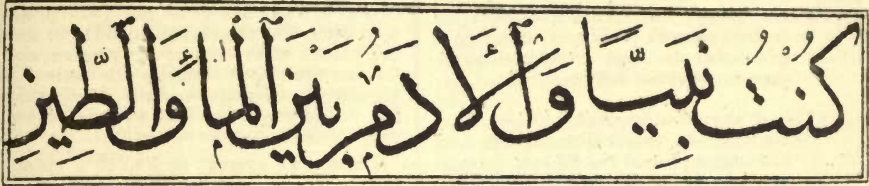 كُنْتُ نَبِيًّا وَآلْأَدَمُ بَيْنَ آلْمَاءِ وَآلطِّينِ